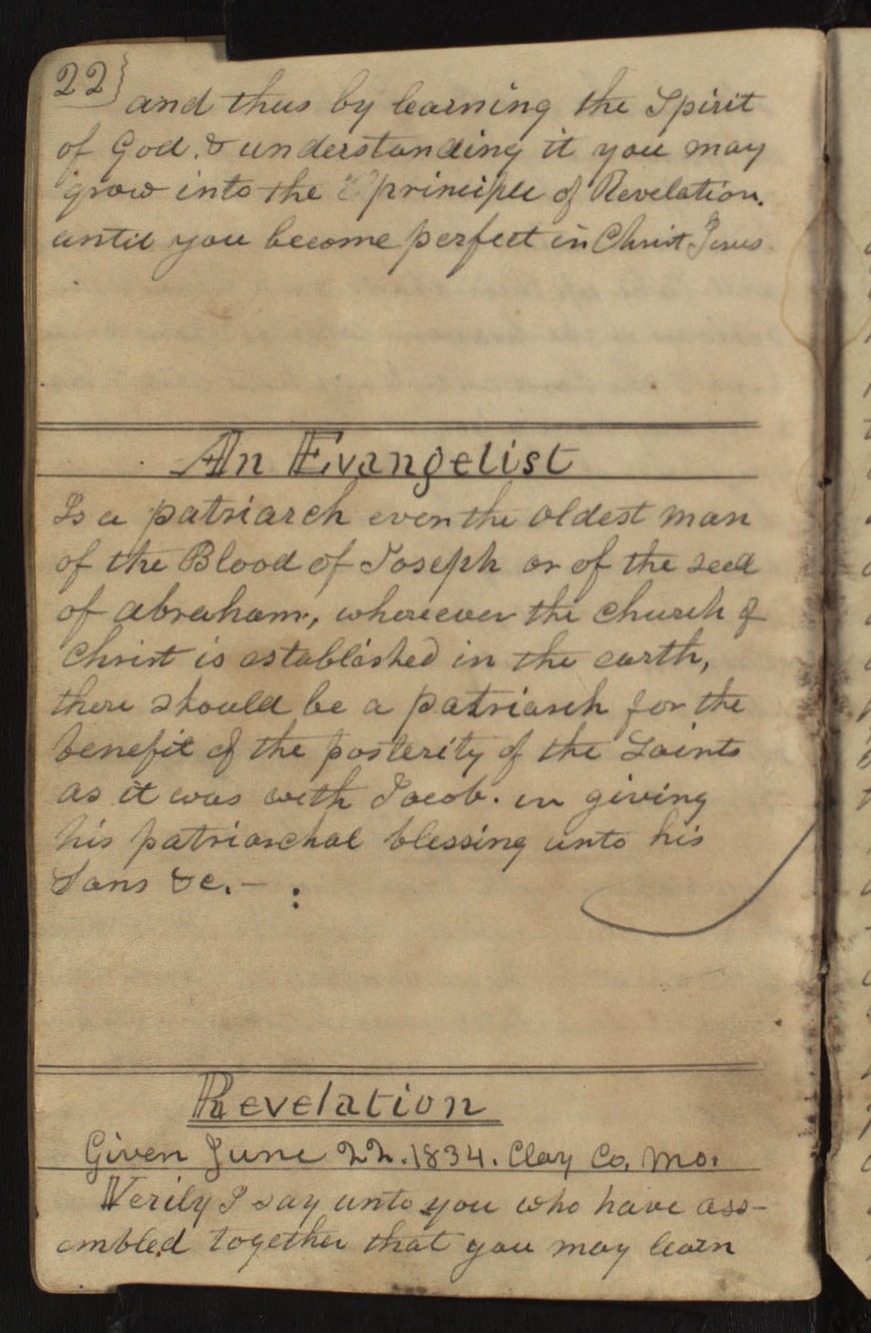 22} and thus by learning the Spirit
of God. & understanding it you may
grow into the principle of Revelation.
until you become perfect in Christ Jesus.
An Evangelist
Is a patriarch even the oldest man
of the Blood of Joseph or of the seed
of abraham, whereever the church of
Christ is established in the earth,
there should be a patriarch for the
benefit of the posterity of the Saints
as it was with Jacob. in giving
his patriarchal blessing unto his
Sons &c. – :
Revelation
Given June 22. 1834. Clay Co. Mo.
Verily I say unto you who have ass-
embled together that you may learn